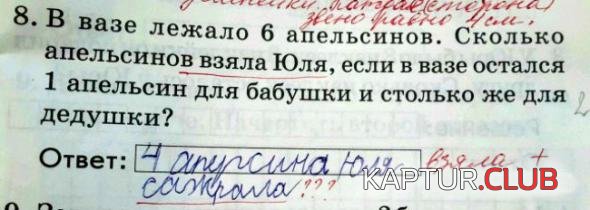 звено равно 4 см.
8. В вазе лежало 6 апельсинов. Сколько
апельсинов взяла Юля, если в вазе остался
1 апельсин для бабушки и столько же для
дедушки?
Ответ: 4 апурсина Юля взяла +
сажрала ???
KAPTUR.CLUB